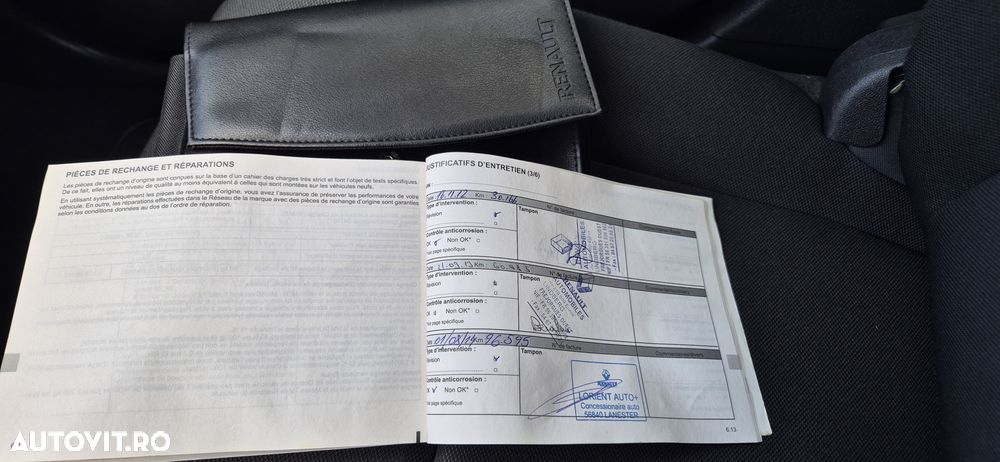 RENAULT
PIÈCES DE RECHANGE ET RÉPARATIONS
Les pièces de rechange d'origine sont conçues sur la base d'un cahier des charges très strict et font l'objet de tests spécifiques.
De ce fait, elles ont un niveau de qualité au moins équivalent à celles qui sont montées sur les véhicules neufs.
En utilisant systématiquement les pièces de rechange d'origine, vous avez l'assurance de préserver les performances de votre
véhicule. En outre, les réparations effectuées dans le Réseau de la marque avec des pièces de rechange d'origine sont garanties
selon les conditions données au dos de l'ordre de réparation.
JUSTIFICATIFS D'ENTRETIEN (3/6)
Date 16.11.12 Km : 30.166 N° de facture
Type d'intervention : Tampon
Révision
Contrôle anticorrosion :
OK Non OK*
Voir page spécifique
AUTOMOBILES
Date 11.09.13 Km : N° de facture
Type d'intervention : Tampon
Révision
Contrôle anticorrosion :
OK Non OK*
Voir page spécifique
RENAULT
AUTOMOBILES
Date 01/08/14 Km 96.595 N° de facture
Type d'intervention : Tampon
Révision
Contrôle anticorrosion :
OK Non OK*
Voir page spécifique
RENAULT
LORIENT AUTO+
Concessionaire auto
56840 LANESTER
6.13
AUTOVIT.RO